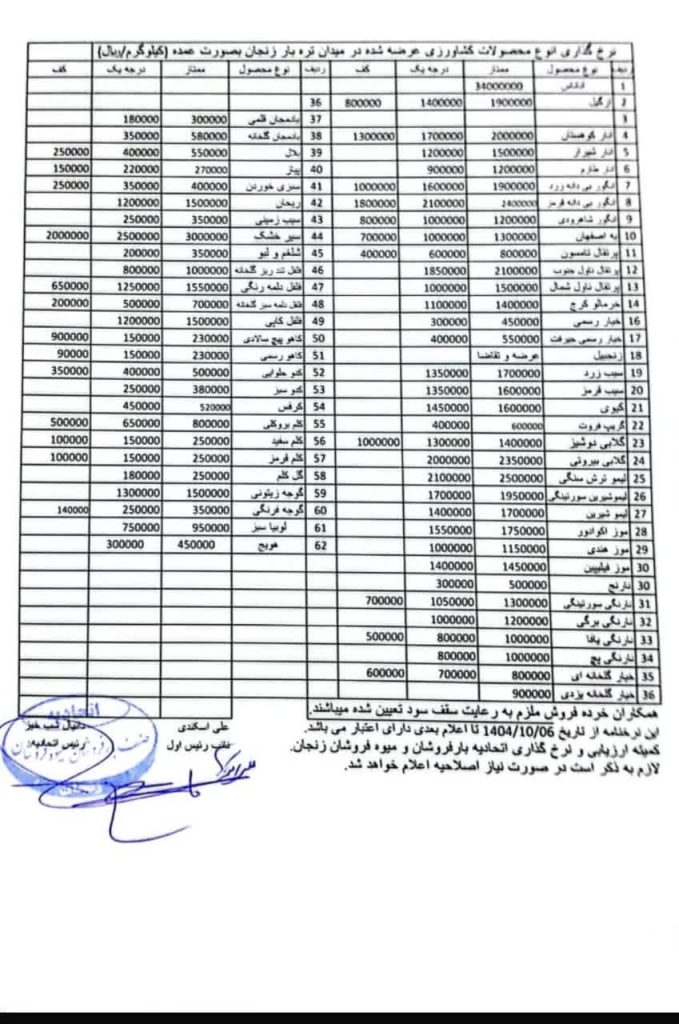 نرخ گذاری انواع محصولات کشاورزی عرضه شده در میدان تره بار زنجان بصورت عمده (کیلوگرم/ریال)
ردیف نوع محصول ممتاز درجه یک کف ردیف نوع محصول ممتاز درجه یک کف
1 آناناس 34000000
2 ازگیل 1900000 1400000 800000 36
3 37 بادمجان قلمی 300000 180000
4 انار کوهستان 2000000 1700000 1300000 38 بادمجان گلخانه 580000 350000
5 انار شیراز 1500000 1200000 39 بلال 550000 400000 250000
6 انار طارم 1200000 900000 40 پیاز 270000 220000 150000
7 انگور بی دانه زرد 1900000 1600000 1000000 41 سبزی خوردن 400000 350000 250000
8 انگور بی دانه قرمز 2400000 2100000 1800000 42 ریحان 1500000 1200000
9 انگور شاهرودی 1200000 1000000 800000 43 سیب زمینی 350000 250000
10 به اصفهان 1300000 1000000 700000 44 سیر خشک 3000000 2500000 2000000
11 پرتقال تامسون 800000 600000 400000 45 شلغم و لبو 350000 200000
12 پرتقال ناول جنوب 2100000 1850000 46 فلفل تند ریز گلخانه 1000000 800000
13 پرتقال ناول شمال 1500000 1000000 47 فلفل دلمه رنگی 1550000 1250000 650000
14 خرمالو کرج 1400000 1100000 48 فلفل دلمه سبز گلخانه 700000 500000 200000
16 خیار رسمی 450000 300000 49 فلفل کاپی 1500000 1200000
17 خیار رسمی جیرفت 550000 400000 50 کاهو پیچ سالادی 230000 150000 900000
18 زنجبیل عرضه و تقاضا 51 کاهو رسمی 230000 150000 90000
19 سیب زرد 1700000 1350000 52 کدو حلوایی 500000 400000 350000
20 سیب قرمز 1600000 1350000 53 کدو سبز 380000 250000
21 کیوی 1600000 1450000 54 کرفس 520000 450000
22 گریپ فروت 600000 400000 55 کلم بروکلی 800000 650000 500000
23 گلابی دوشیز 1400000 1300000 1000000 56 کلم سفید 250000 150000 100000
24 گلابی بیروتی 2350000 2000000 57 کلم قرمز 250000 150000 100000
25 لیمو ترش سنگی 2500000 2100000 58 گل کلم 250000 180000
26 لیموشیرین سورتینگی 1950000 1700000 59 گوجه زیتونی 1500000 1300000
27 لیمو شیرین 1700000 1400000 60 گوجه فرنگی 350000 250000 140000
28 موز اکوادور 1750000 1550000 61 لوبیا سبز 950000 750000
29 موز هندی 1150000 1000000 62 هویج 450000 300000
30 موز فیلیپین 1450000 1400000
30 نارنج 500000 300000
31 نارنگی سورتینگی 1300000 1050000 700000
32 نارنگی برگی 1200000 1000000
33 نارنگی یافا 1000000 800000 500000
34 نارنگی پیج 1000000 800000
35 خیار گلخانه ای 800000 700000 600000
36 خیار گلخانه یزدی 900000
همکاران خرده فروش ملزم به رعایت سقف سود تعیین شده میباشند.
این نرخنامه از تاریخ 1404/10/06 تا اعلام بعدی دارای اعتبار می باشد.
کمیته ارزیابی و نرخ گذاری اتحادیه بارفروشان و میوه فروشان زنجان.
لازم به ذکر است در صورت نیاز اصلاحیه اعلام خواهد شد.
علی اسکندی
نائب رئیس اول
دانیال شب خیز
رئیس اتحادیه
اتحادیه